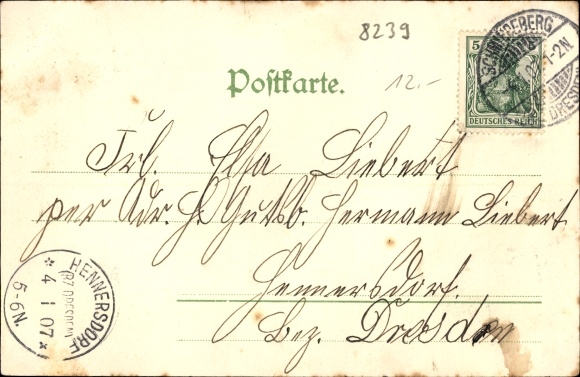 8239
SCHMIEDEBERG
1-2N
DRESD
5
DEUTSCHES REICH
Postkarte.
12.-
Frl. Elsa Liebert
per Adr. H. Gutsb. Hermann Liebert
Hennersdorf.
Bez. Dresden
HENNERSDORF
(BZ DRESDEN)
* 4 1 07 *
5-6N.